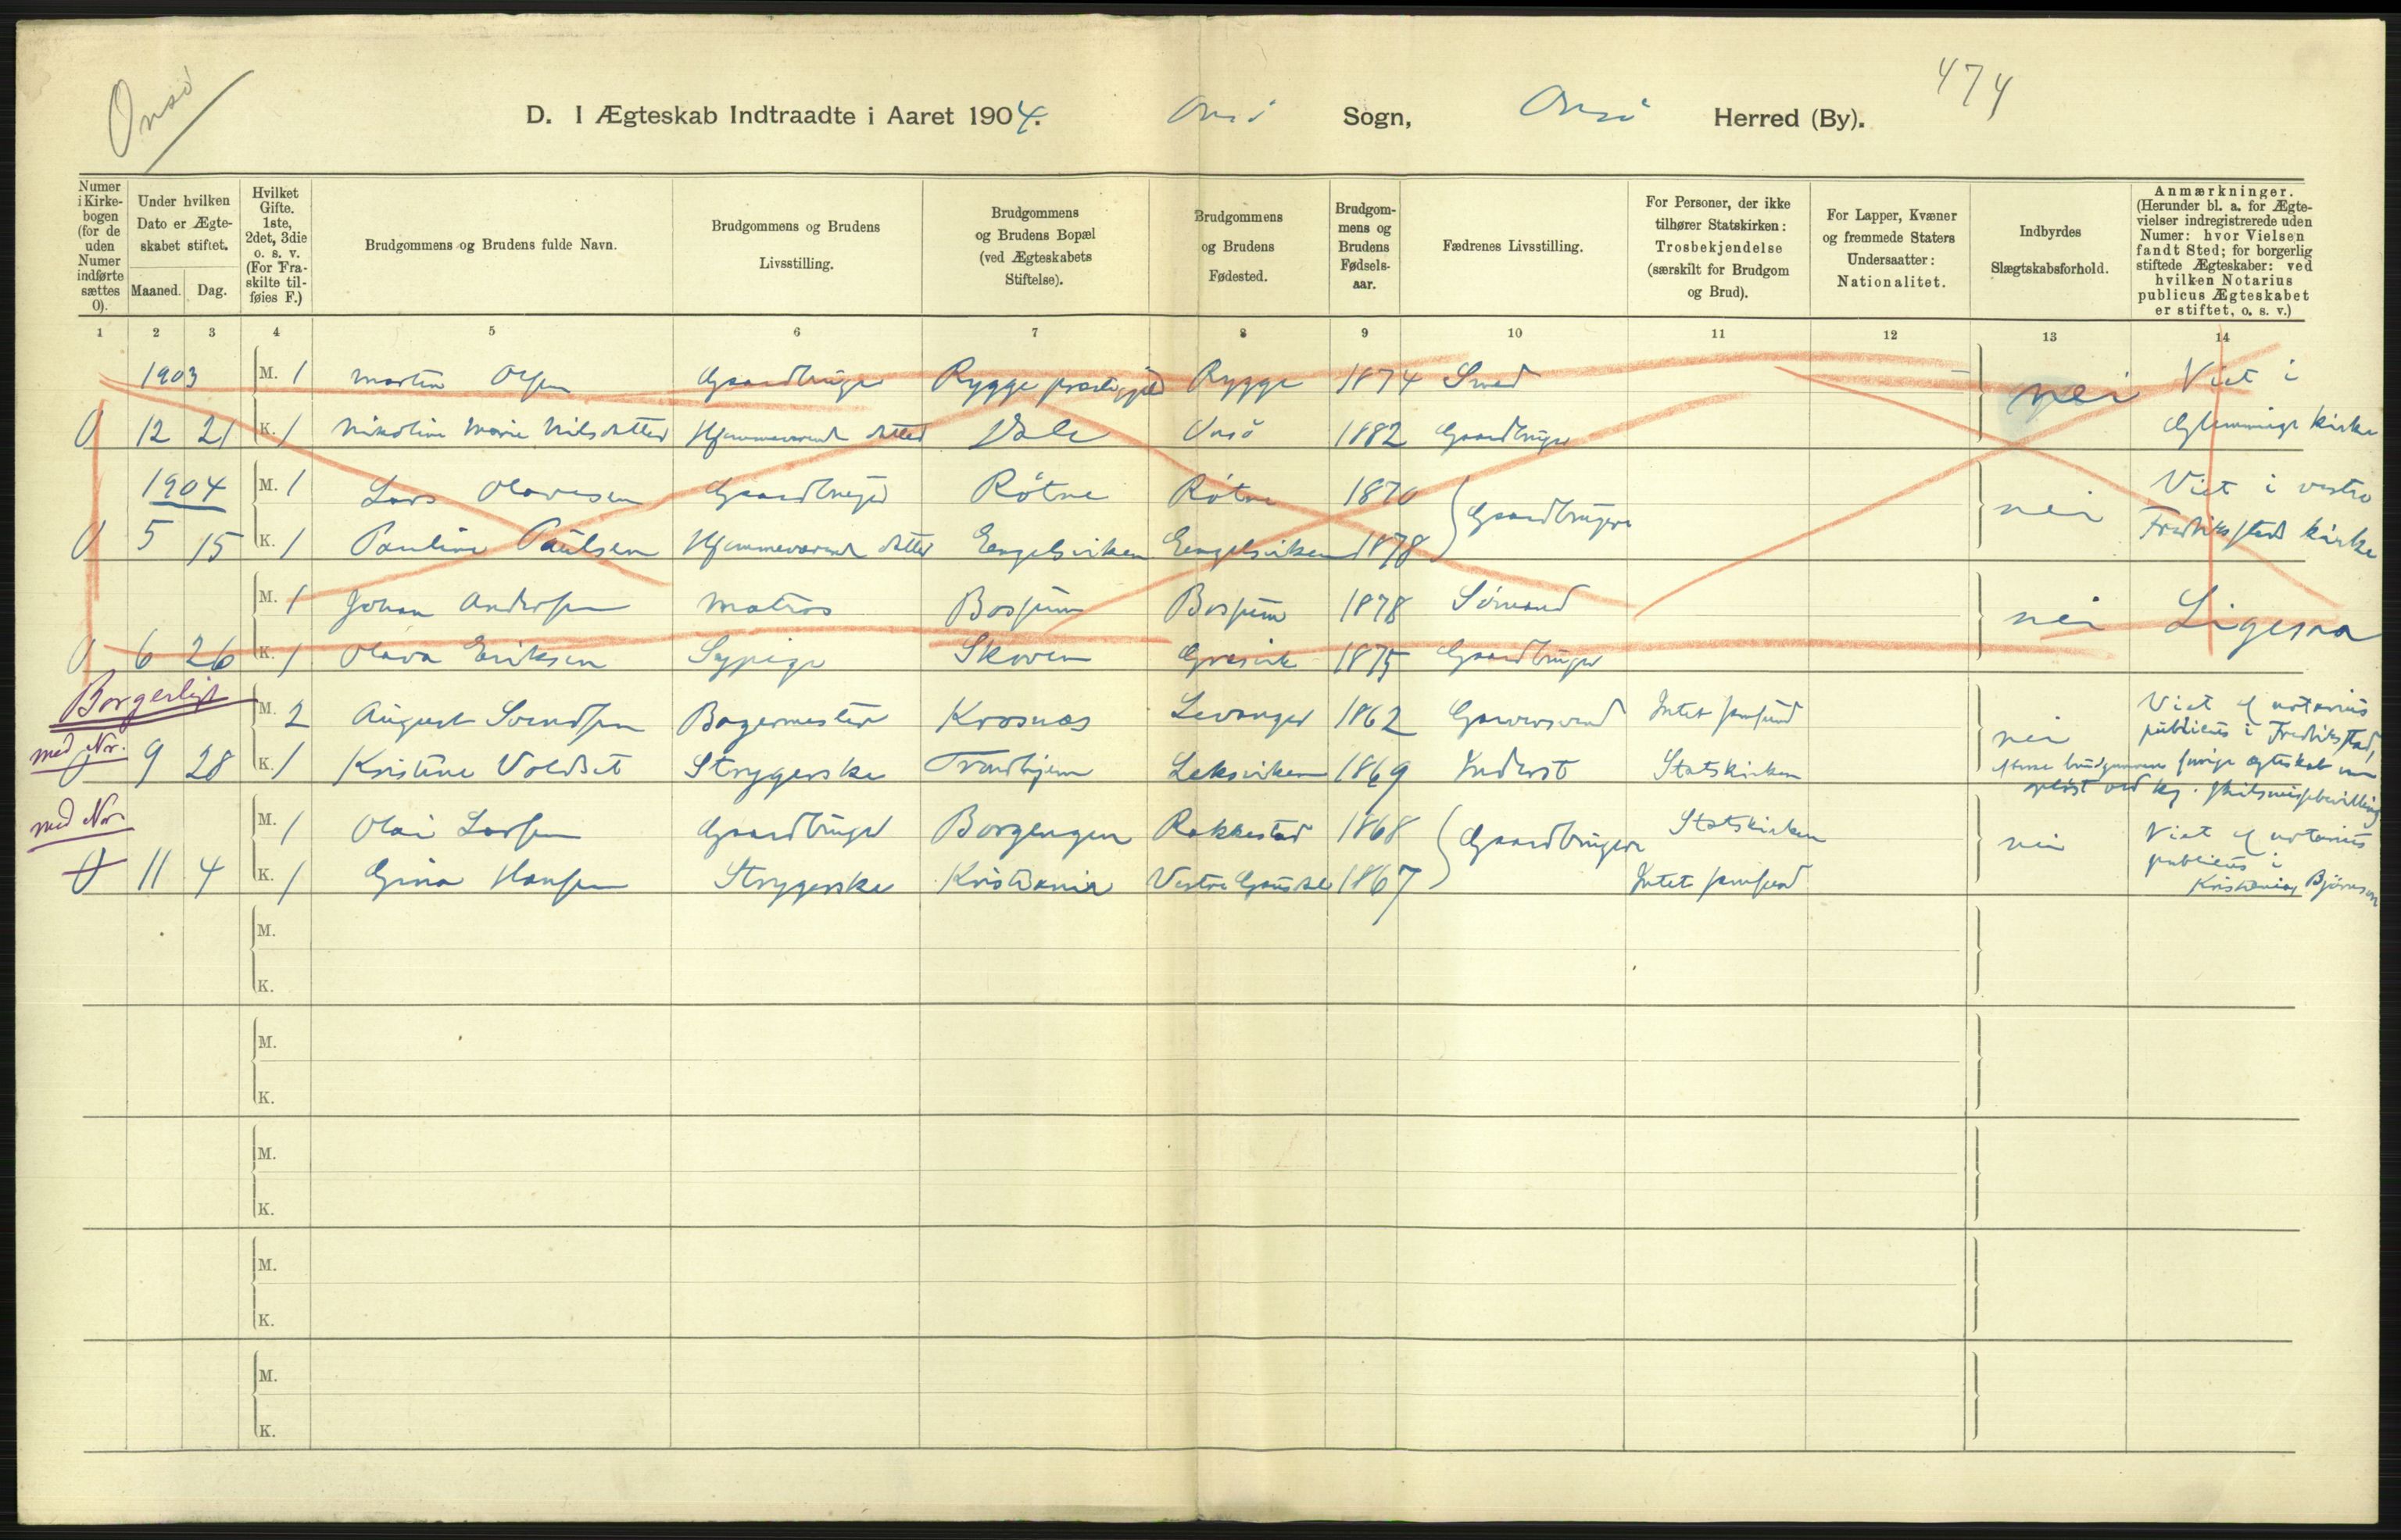 Onsö
474
D. I Ægteskab Indtraadte i Aaret 1904. Onsö Sogn, Onsö Herred (By).
Numer i Kirkebogen (for de uden Numer indførte sættes 0).
Under hvilken Dato er Ægteskabet stiftet.
Maaned. Dag.
Hvilket Gifte. 1ste, 2det, 3die o. s. v. (For Fraskilte tilføies F.)
Brudgommens og Brudens fulde Navn.
Brudgommens og Brudens Livsstilling.
Brudgommens og Brudens Bopæl (ved Ægteskabets Stiftelse).
Brudgommens og Brudens Fødested.
Brudgommens og Brudens Fødselsaar.
Fædrenes Livsstilling.
For Personer, der ikke tilhører Statskirken: Trosbekjendelse (særskilt for Brudgom og Brud).
For Lapper, Kvæner og fremmede Staters Undersaatter: Nationalitet.
Indbyrdes Slægtskabsforhold.
Anmærkninger. (Herunder bl. a. for Ægtevielser indregistrerede uden Numer: hvor Vielsen fandt Sted; for borgerlig stiftede Ægteskaber: ved hvilken Notarius publicus Ægteskabet er stiftet, o. s. v.)
1 2 3 4 5 6 7 8 9 10 11 12 13 14
1903 M. 1 Martin Olsen Gaardbruger Rygge præstegjæld Rygge 1874 Smed nei Viet i
0 12 21 K. 1 Nikoline Marie Nilsdatter Hjemmeværende datter Vale Onsö 1882 Gaardbruger Glemminge kirke
1904 M. 1 Lars Olavesen Gaardbruger Rötne Rötne 1870 Gaardbrugere nei Viet i vestre
0 5 15 K. 1 Pauline Paulsen Hjemmeværende datter Engelsviken Engelsviken 1878 Fredriksstad kirke
M. 1 Johan Andersen Matros Bossum Bossum 1878 Sömand nei Ligesaa
0 6 26 K. 1 Olava Eriksen Sypige Skoven Gresvik 1875 Gaardbruger
Borgerligt
M. 2 August Svendsen Bagermester Krosnæs Levanger 1862 Garversvend Intet samfund nei Viet af notarius
med Nr. publicus i Fredriksstad,
0 9 28 K. 1 Kristine Voldset Strygerske Trondhjem Leksviken 1869 Inderst Statskirken
brudgommens forrige ægteskab
opløst ved kg. skilsmissebevilling
med Nr.
M. 1 Olai Larsen Gaardbruger Borgengen Rakkestad 1868 Gaardbrugere Statskirken nei Viet af notarius
publicus i
0 11 4 K. 1 Gina Hansen Strygerske Kristiania Vestre Gausdal 1867 Intet samfund
Kristiania, Björnson
M.
K.
M.
K.
M.
K.
M.
K.
M.
K.